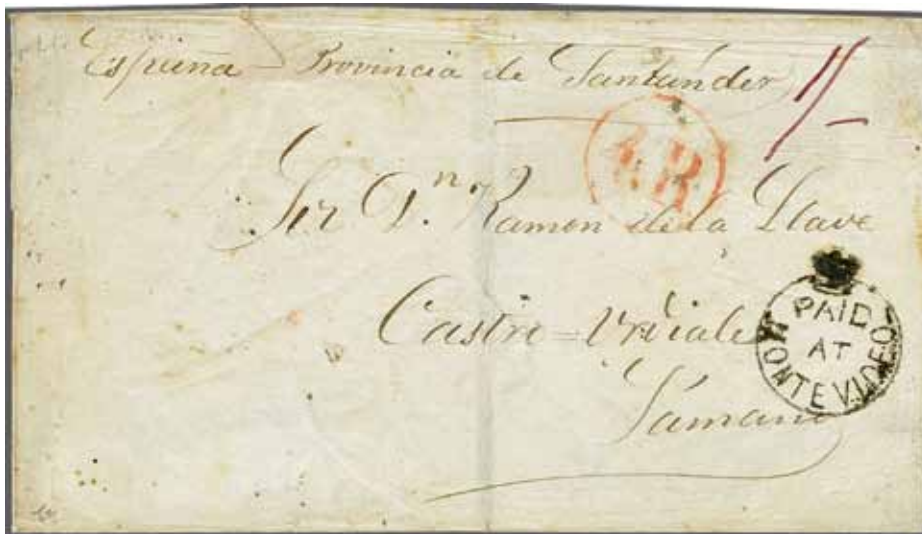 España - Provincia de Santander 1/-
4 R
Sor Dn Ramon de la Llave
Castro=Urdiales
PAID
AT
MONTEVIDEO
Sámano